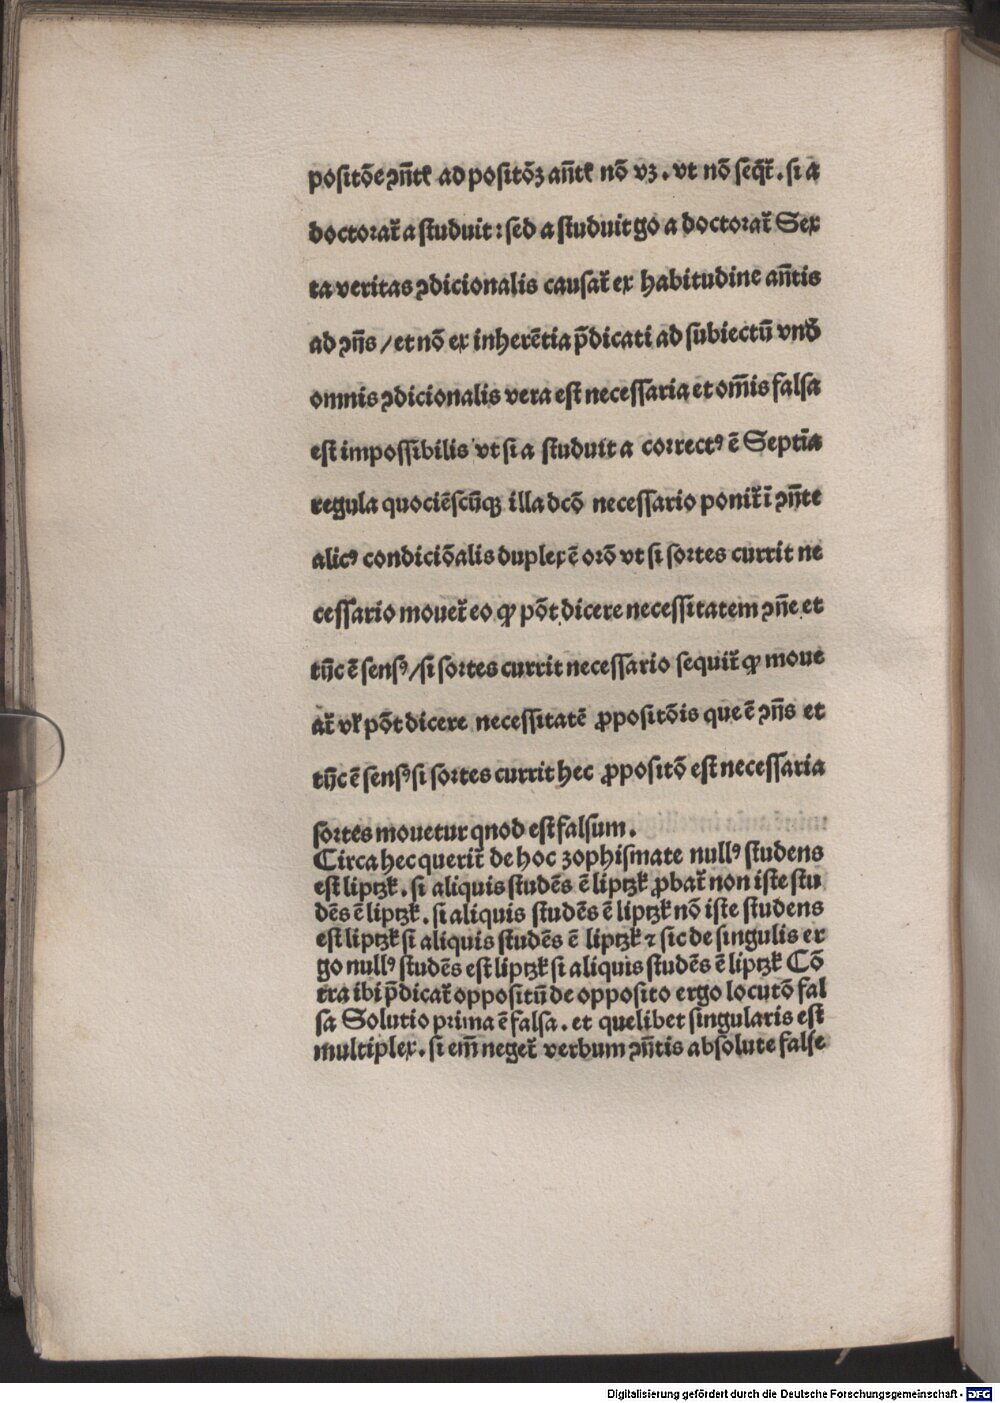 positõe ꝯñtꝭ ad positõꝫ añtꝭ nõ vꝫ. vt nõ seq̃t᷑. si a
doctorat᷑ a studuit: sed a studuit go a doctorat᷑ Sex
ta veritas ꝯdicionalis causat᷑ ex habitudine añtis
ad ꝯñs / et nõ ex inherẽtia p̃dicati ad subiectũ vnð
omnis ꝯdicionalis vera est necessaria et om̃is falsa
est impossibilis vt si a studuit a correctꝰ ẽ Septĩa
regula quociẽscũqꝫ illa dcõ necessario ponit᷑ ĩ ꝯñte
alicꝰ condiciõalis duplex ẽ orõ vt si sortes currit ne
cessario mouet᷑ eo ꝙ põt dicere necessitatem ꝯñe et
tũc ẽ sensꝰ / si sortes currit necessario sequit᷑ ꝙ moue
at᷑ vꝉ põt dicere necessitatẽ ꝓpositõis que ẽ ꝯñs et
tũc ẽ sensꝰ si sortes currit hec ꝓpositõ est necessaria
sortes mouetur qnod est falsum.
Circa hec querit᷑ de hoc zophismate nullꝰ studens
est liptzk̃. si aliquis studẽs ẽ liptzk̃ ꝓbat᷑ non iste stu
dẽs ẽ liptzk̃. si aliquis studẽs ẽ liptzk̃ nõ iste studens
est liptzk̃ si aliquis studẽs ẽ liptzk̃ ⁊ sic de singulis er
go nullꝰ studẽs est liptzk̃ si aliquis studẽs ẽ liptzk̃ Cõ
tra ibi p̃dicat᷑ oppositũ de opposito ergo locutõ fal
sa Solutio prima ẽ falsa. et quelibet singularis est
multiplex. si em̃ neget᷑ verbum ꝯñtis absolute false
Digitalisierung gefördert durch die Deutsche Forschungsgemeinschaft - DFG